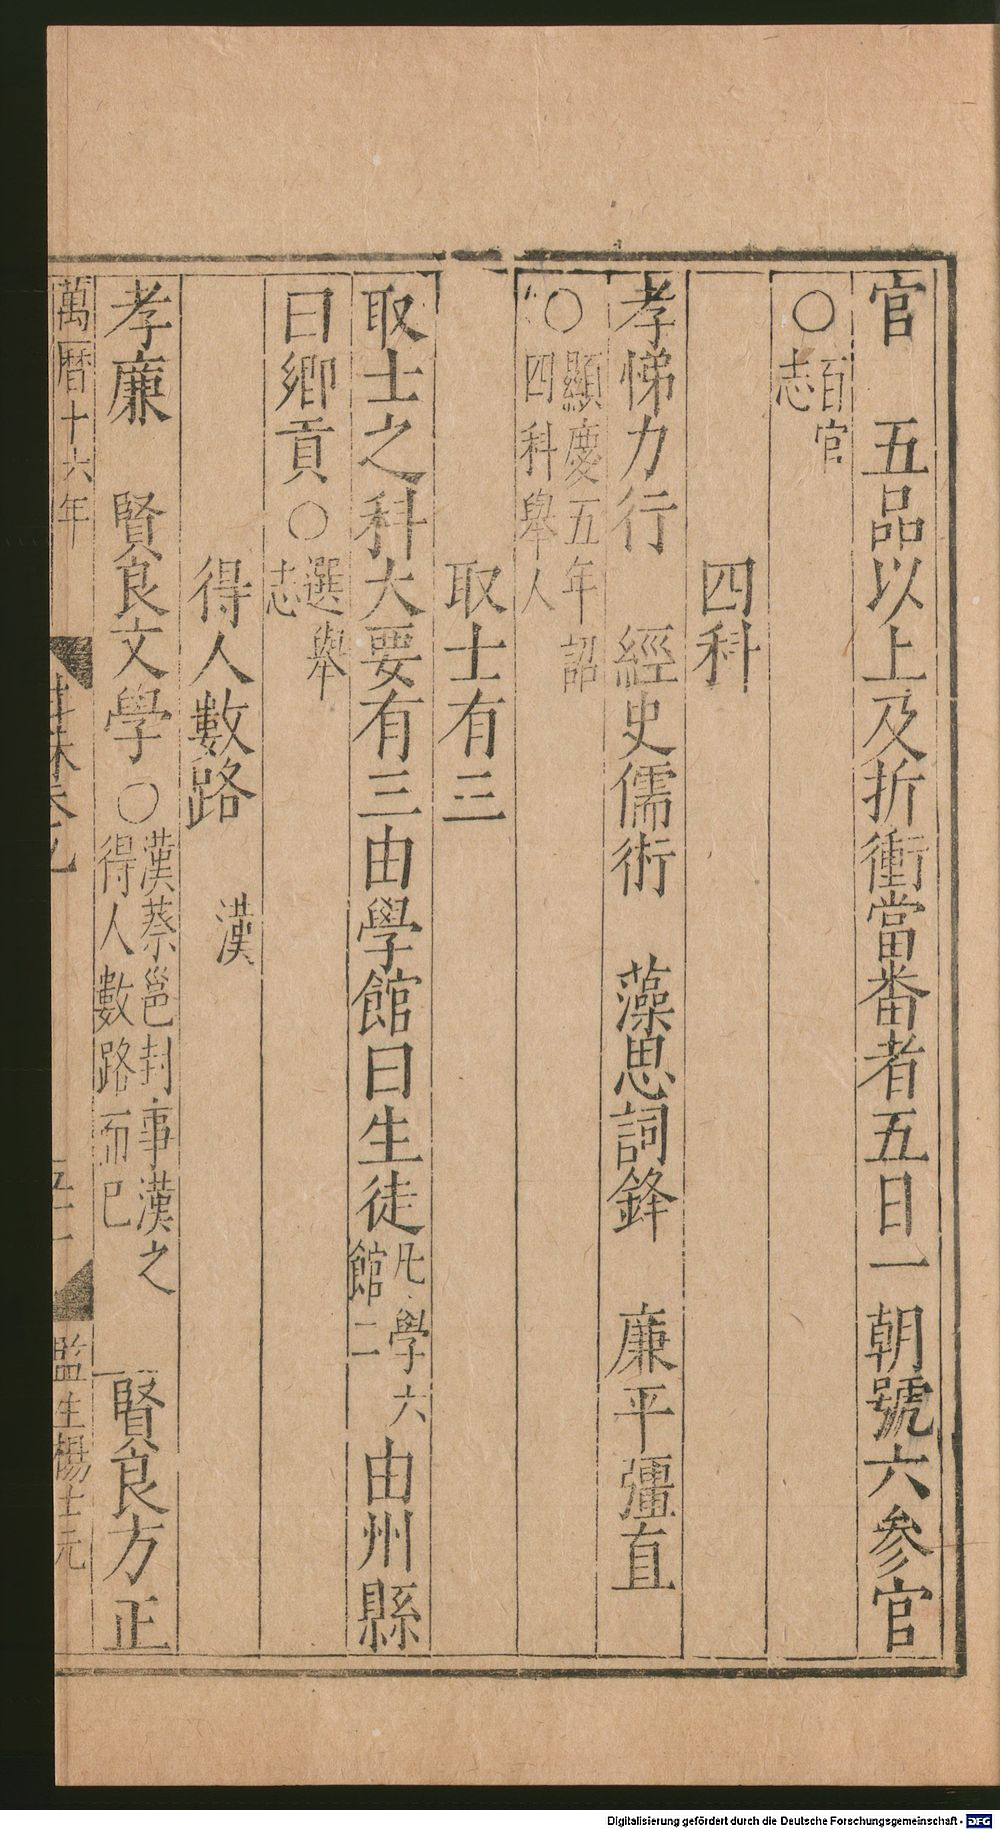 官　五品以上及折衝當番者五日一朝號六參官
○百官志
四科
孝悌力行　經史儒術　藻思詞鋒　廉平彊直
○顯慶五年詔四科舉人
取士有三
取士之科大要有三由學館曰生徒凡學六館二由州縣
曰鄉貢○選舉志
得人數路　漢
孝廉　賢良文學○漢蔡邕封事漢之得人數路而已　賢良方正
萬曆十六年　監生楊士元
Digitalisierung gefördert durch die Deutsche Forschungsgemeinschaft - DFG